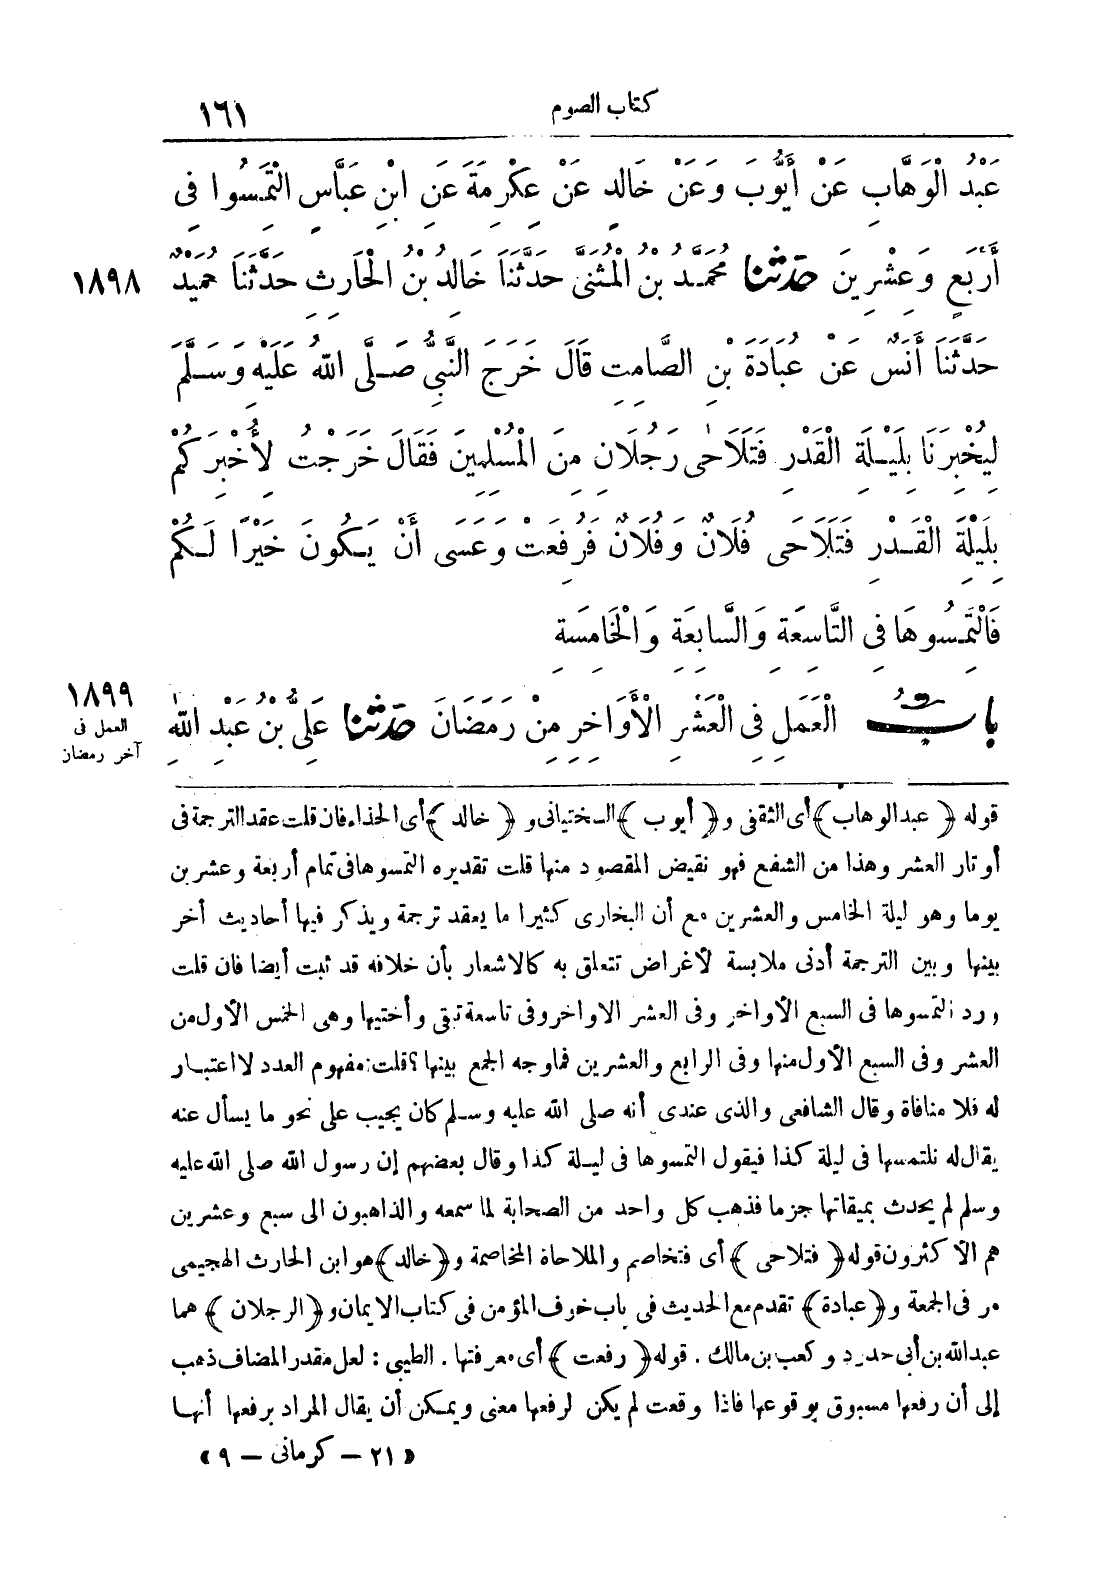 كتاب الصوم
١٦١
عَبْدُ الْوَهَّابِ عَنْ أَيُّوبَ وَعَنْ خَالِدٍ عَنْ عِكْرِمَةَ عَنِ ابْنِ عَبَّاسٍ الْتَمِسُوا فِي
١٨٩٨
أَرْبَعٍ وَعِشْرِينَ حَدَّثَنَا مُحَمَّدُ بْنُ الْمُثَنَّى حَدَّثَنَا خَالِدُ بْنُ الْحَارِثِ حَدَّثَنَا حُمَيْدٌ
حَدَّثَنَا أَنَسٌ عَنْ عُبَادَةَ بْنِ الصَّامِتِ قَالَ خَرَجَ النَّبِيُّ صَلَّى اللهُ عَلَيْهِ وَسَلَّمَ
لِيُخْبِرَنَا بِلَيْلَةِ الْقَدْرِ فَتَلَاحَى رَجُلَانِ مِنَ الْمُسْلِمِينَ فَقَالَ خَرَجْتُ لِأُخْبِرَكُمْ
بِلَيْلَةِ الْقَدْرِ فَتَلَاحَى فُلَانٌ وَفُلَانٌ فَرُفِعَتْ وَعَسَى أَنْ يَكُونَ خَيْرًا لَكُمْ
فَالْتَمِسُوهَا فِي التَّاسِعَةِ وَالسَّابِعَةِ وَالْخَامِسَةِ
١٨٩٩
العمل فى
آخر رمضان
بابُ الْعَمَلِ فِي الْعَشْرِ الْأَوَاخِرِ مِنْ رَمَضَانَ حَدَّثَنَا عَلِيُّ بْنُ عَبْدِ اللهِ
قوله ﴿عبد الوهاب﴾ أى الثقفى و﴿أيوب﴾ السختيانى و﴿خالد﴾ أى الحذاء فان قلت عقد الترجمة فى
أوتار العشر وهذا من الشفع فهو نقيض المقصود منها قلت تقديره التمسوها فى تمام أربعة وعشرين
يوما وهو ليلة الخامس والعشرين مع أن البخارى كثيرا ما يعقد ترجمة ويذكر فيها أحاديث أخر
بينها وبين الترجمة أدنى ملابسة لأغراض تتعلق به كالاشعار بأن خلافه قد ثبت أيضا فان قلت
ورد التمسوها فى السبع الأواخر وفى العشر الاواخر وفى تاسعة تبقى وأختيها وهى الخمس الأول من
العشر وفى السبع الأول منها وفى الرابع والعشرين فما وجه الجمع بينها؟ قلت: مفهوم العدد لا اعتبار
له فلا منافاة وقال الشافعى والذى عندى أنه صلى الله عليه وسلم كان يجيب على نحو ما يسأل عنه
يقال له نلتمسها فى ليلة كذا فيقول التمسوها فى ليلة كذا وقال بعضهم إن رسول الله صلى الله عليه
وسلم لم يحدث بميقاتها جزما فذهب كل واحد من الصحابة لما سمعه والذاهبون الى سبع وعشرين
هم الأكثرون قوله ﴿فتلاحى﴾ أى فتخاصم والملاحاة المخاصمة و﴿خالد﴾ هو ابن الحارث الهجيمى
مر فى الجمعة و﴿عبادة﴾ تقدم مع الحديث فى باب خوف المؤمن فى كتاب الايمان و﴿الرجلان﴾ هما
عبد الله بن أبى حدرد وكعب بن مالك. قوله ﴿رفعت﴾ أى معرفتها. الطيبى: لعل مقدر المضاف ذهب
إلى أن رفعها مسبوق بوقوعها فاذا وقعت لم يكن لرفعها معنى ويمكن أن يقال المراد برفعها أنها
«٢١ - كرمانى - ٩»